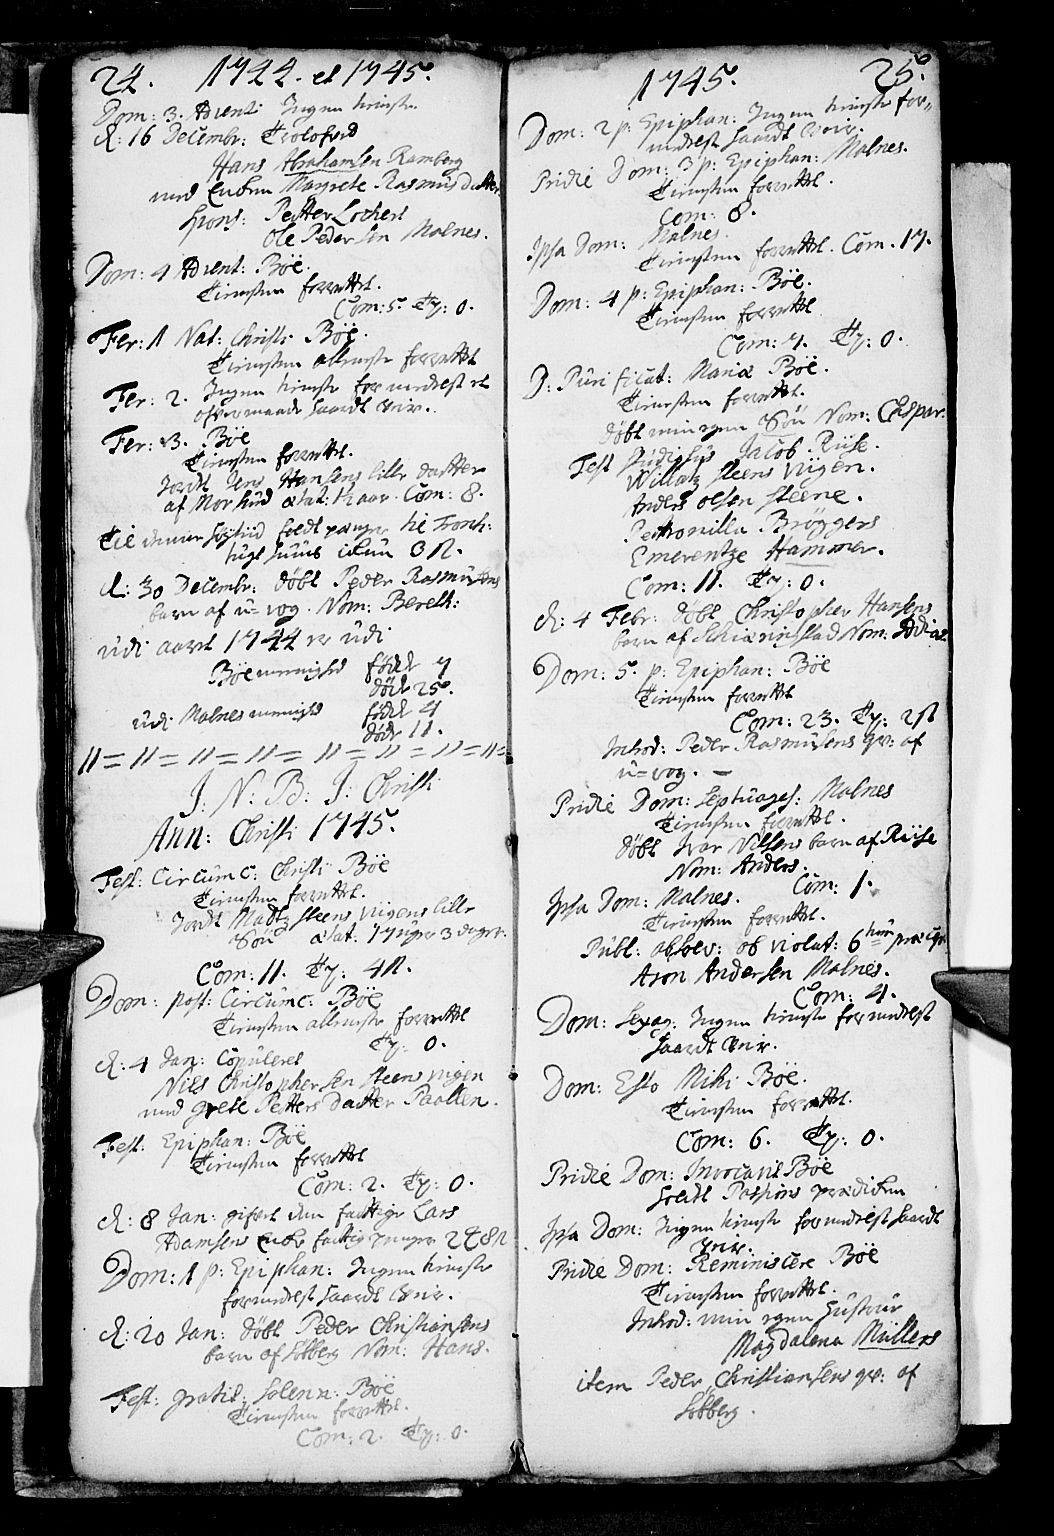 24. 1744. et 1745.
Dom: 3. Advent: Ingen tieniste
d: 16 Decembr: Trolofved
Hans Abrahamsen Ramberg
med Enken Margrete Rasmus Datter
Spons: Petter Lochert
Ole Pedersen Malnes.
Dom: 4 Advent: Böe.
Tienesten forrettet.
Com: 5. Ty: 0.
Fer: 1 Nat: Christi Böe.
Tienesten allene forrettet
Fer: 2. Ingen tieniste formedelst et
ofvermaade haardt veir.
Fer: 3. Böe
Tienesten forrettet.
Jordet Jens Hansens lille datter
af Morhud ætat: 12 aar. Com: 8.
Til denne høytiid faldt penger til Tronh:
huus
d: 30 Decembr: döbt Peder Rasmusens
barn af u-vog. Nom: Bereth:
udi aaret 1744 er udi
Böe menighed födde 7
döde 25.
udi Malnes menighed födde 4
döde 11.
J: N: B: J: Christi
Ann: Christi 1745.
Fest: Circumc: Christi Böe
Tienesten forrettet.
Jordet Madtz Steensviigens lille
Sön ætat: 17 uger 3 dager.
Com: 11. Ty: 4
Dom: post: Circumc: Böe
Tienesten allene forrettet
Ty: 0.
d: 4 Jan: Copuleret
Nils Christophersen Steensvigen
med Grete Petters Datter Paallen.
Fest: Epiphan: Böe
Tienesten forrettet
Com: 2. Ty: 0.
d: 8 Jan: gifvet den fattige Lars
Adamsens Enke fattig penger
Dom: 1 p: Epiphan: Ingen tieniste
formedelst haardt veir.
d: 20 Jan: döbt Peder Christiansens
barn af Sobberg Nom: Hans.
Fest: gratil: Solenn: Böe
Tienesten forrettet.
Com: 2. Ty: 0.
1745. 25.
Dom: 2 p: Epiphan: Ingen tieniste for,,
medelst haardt veir.
Pridie Dom: 3 p: Epiphan: Malnes.
Tienesten forrettet.
Com: 8.
Ipsa Dom: Malnes.
Tienesten forrettet. Com. 17.
Dom: 4 p: Epiphan: Böe.
Tienesten forrettet
Com: 7. Ty: 0.
D: Purificat: Mariæ Böe.
Tienesten forrettet.
döbt min egen Sön Nom: Chaspar.
Test Jacob Riise.
Willatz Steensviigen.
Anders Olsen Steene.
Petronilla Bröggers
Emerentze Hammer.
Com: 11. Ty: 0.
d: 4 Febr: döbt Christopher Hansens
barn af Nom:
Dom: 5. p: Epiphan: Böe
Tienesten forrettet
Com: 23. Ty: 2
Introd: Peder Rasmusens qv: af
u-vog. –
Pridie Dom: Septuages: Malnes
Tienesten forrettet.
döbt Ivar Nilsens barn af Riise
Nom: Anders.
Com: 1.
Ipsa Dom: Malnes.
Tienesten forrettet.
Publ: absolv: ob violat: 6 præcept
Aron Andersen Malnes.
Com: 4.
Dom: Sexag: Ingen tieniste formedelst
haardt veir.
Dom: Esto Mihi Böe.
Tienesten forrettet.
Com: 6. Ty: 0.
Pridie Dom: Invocavit Böe
holdt Passions prædiken
Ipsa Dom: Ingen tieniste formedelst haardt
veir.
Pridie Dom: Reminiscere Böe
Tienesten forrettet.
Introd: min egen Hustrue
Magdalena Müllers
item Peder Christiansens qv: af
Sobberg.